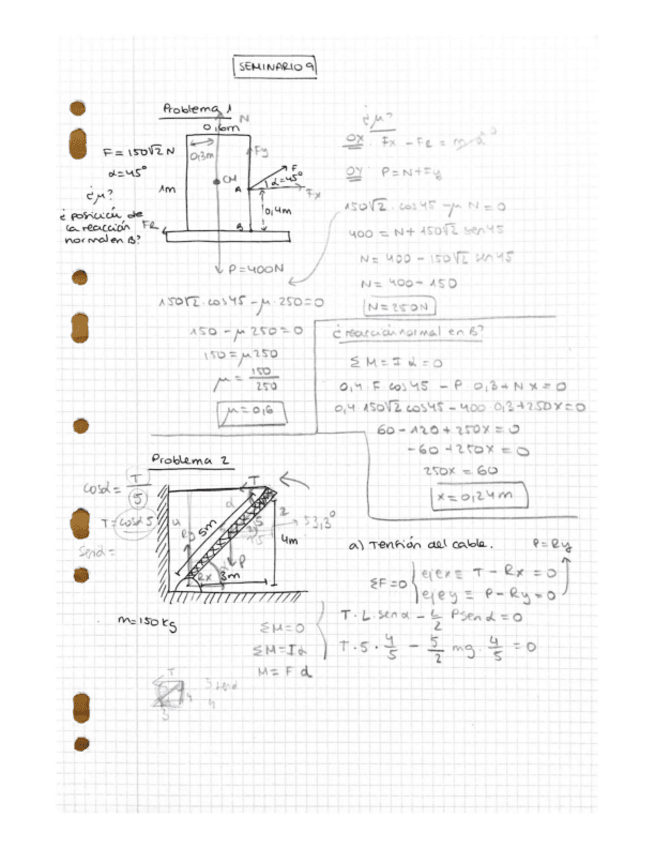 SEMINARIO 9
Problema 1
N
0,6m
F = 150√2 N
α = 45°
¿μ?
¿posición de
la reacción
normal en B?
0,3m
1m
CM
Fy
F
α=45°
Fx
A
0,4m
B
FR
P=400N
¿μ?
OX: Fx - FR = m·a 0
OY: P = N + Fy
150√2 · cos 45 - μ N = 0
400 = N + 150√2 sen 45
N = 400 - 150√2 sen 45
N = 400 - 150
N = 250N
150√2 · cos 45 - μ · 250 = 0
150 - μ 250 = 0
150 = μ 250
μ = 150/250
μ = 0,6
¿reacción normal en B?
ΣM = I α = 0
0,4 · F cos 45 - P · 0,3 + N x = 0
0,4 · 150√2 cos 45 - 400 · 0,3 + 250x = 0
60 - 120 + 250x = 0
-60 + 250x = 0
250x = 60
x = 0,24m
Problema 2
cosα = T/5
T = cosα 5
Senα =
T
α
5m
4
2
53,3°
4m
Ry
P
Rx
3m
m = 150 kg
a) Tensión del cable.
P = Ry
ΣF = 0
eje x = T - Rx = 0
eje y = P - Ry = 0
ΣM = 0
ΣM = Iα
M = F d
T · L · sen α - L/2 P sen α = 0
T · 5 · 4/5 - 5/2 mg · 4/5 = 0
T
3
4